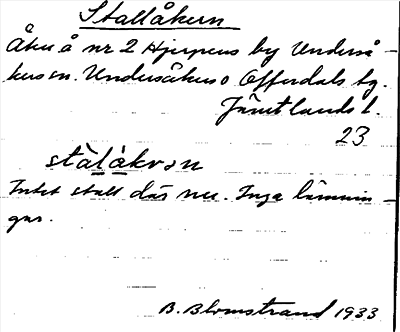 Stallåkern
Åker å nr 2 Hjerpens by Underså-
kers sn. Undersåkers o Offerdals tg.
Jämtlands l.
23
stàlåkræn
Intet stall där nu. Inga lämnin-
gar.
B. Blomstrand 1933